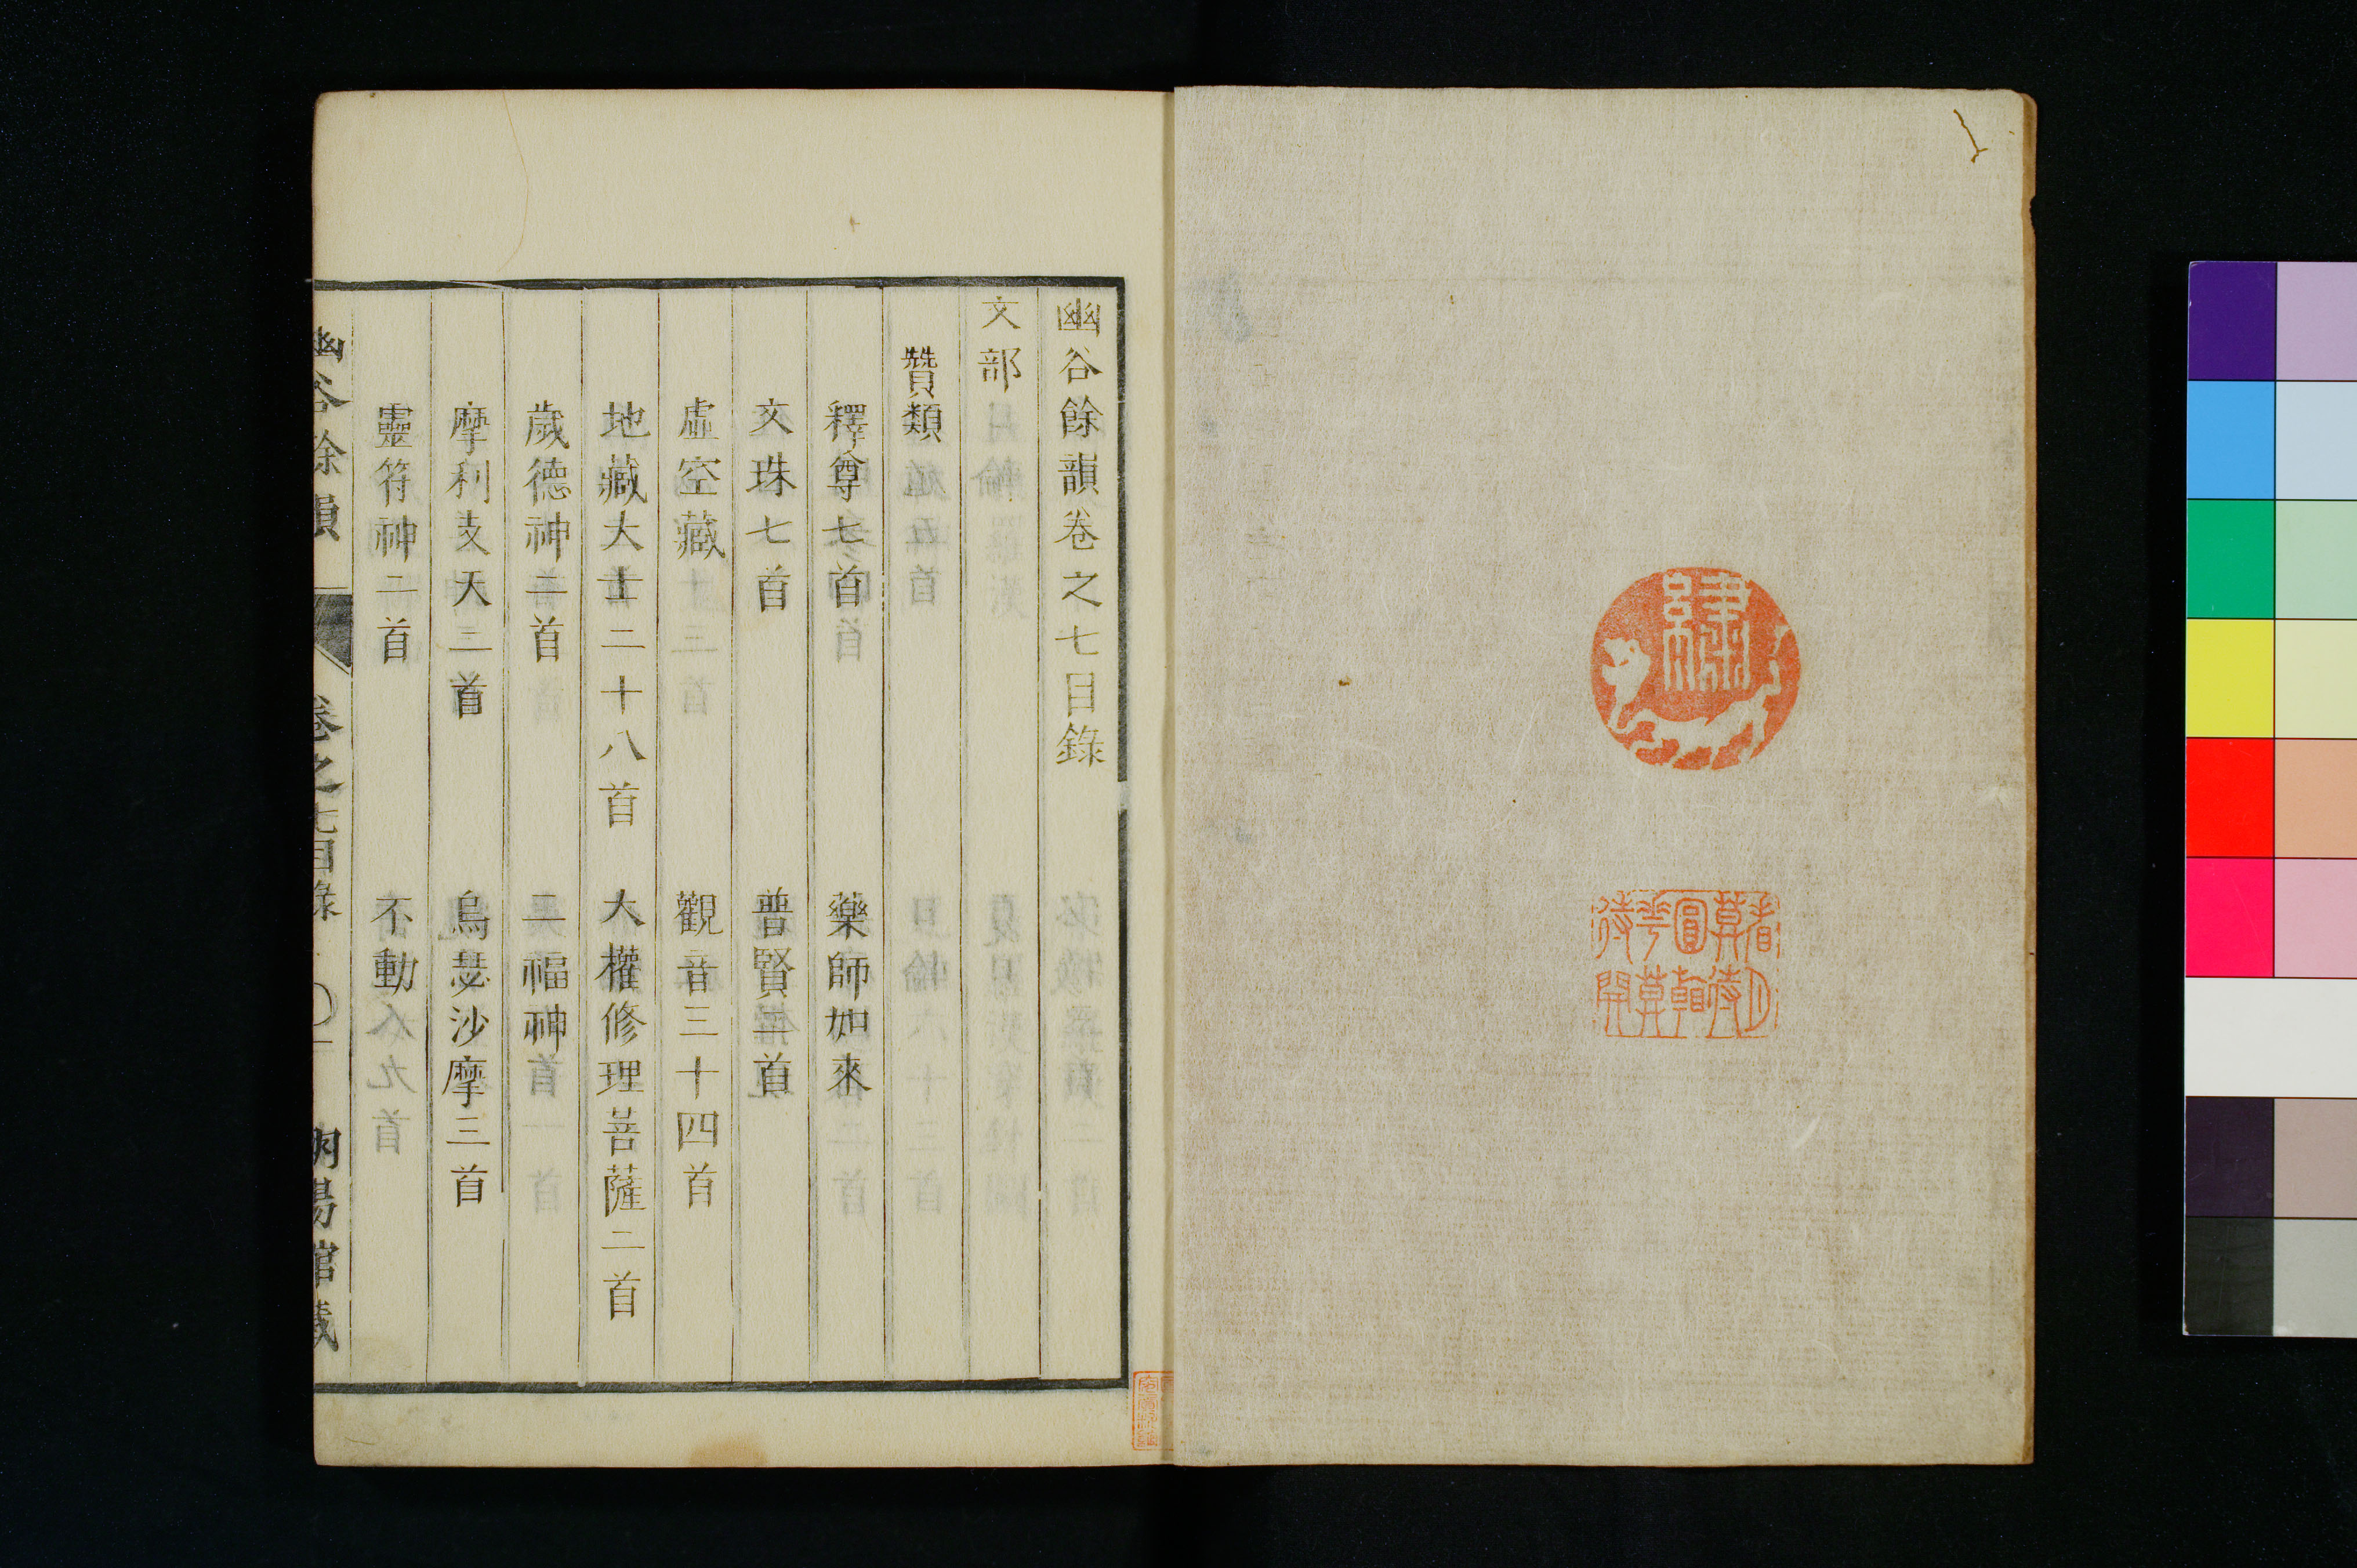 幽谷餘韻卷之七目錄
文部
贊類
釋尊七首　藥師如來
文珠七首　普賢二首
虛空藏　觀音三十四首
地藏大士二十八首　大權修理菩薩二首
歲德神二首　二福神
摩利支天三首　烏芻沙摩三首
靈符神二首　不動
幽谷餘韻　卷之七目錄　一
看月莫待
圓
莫待
花
開